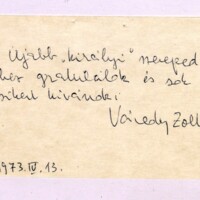 Ujabb „királyi" szereped
hez gratulálok és sok
sikert kívánok:
Várady Zolt
1973. IV. 13.